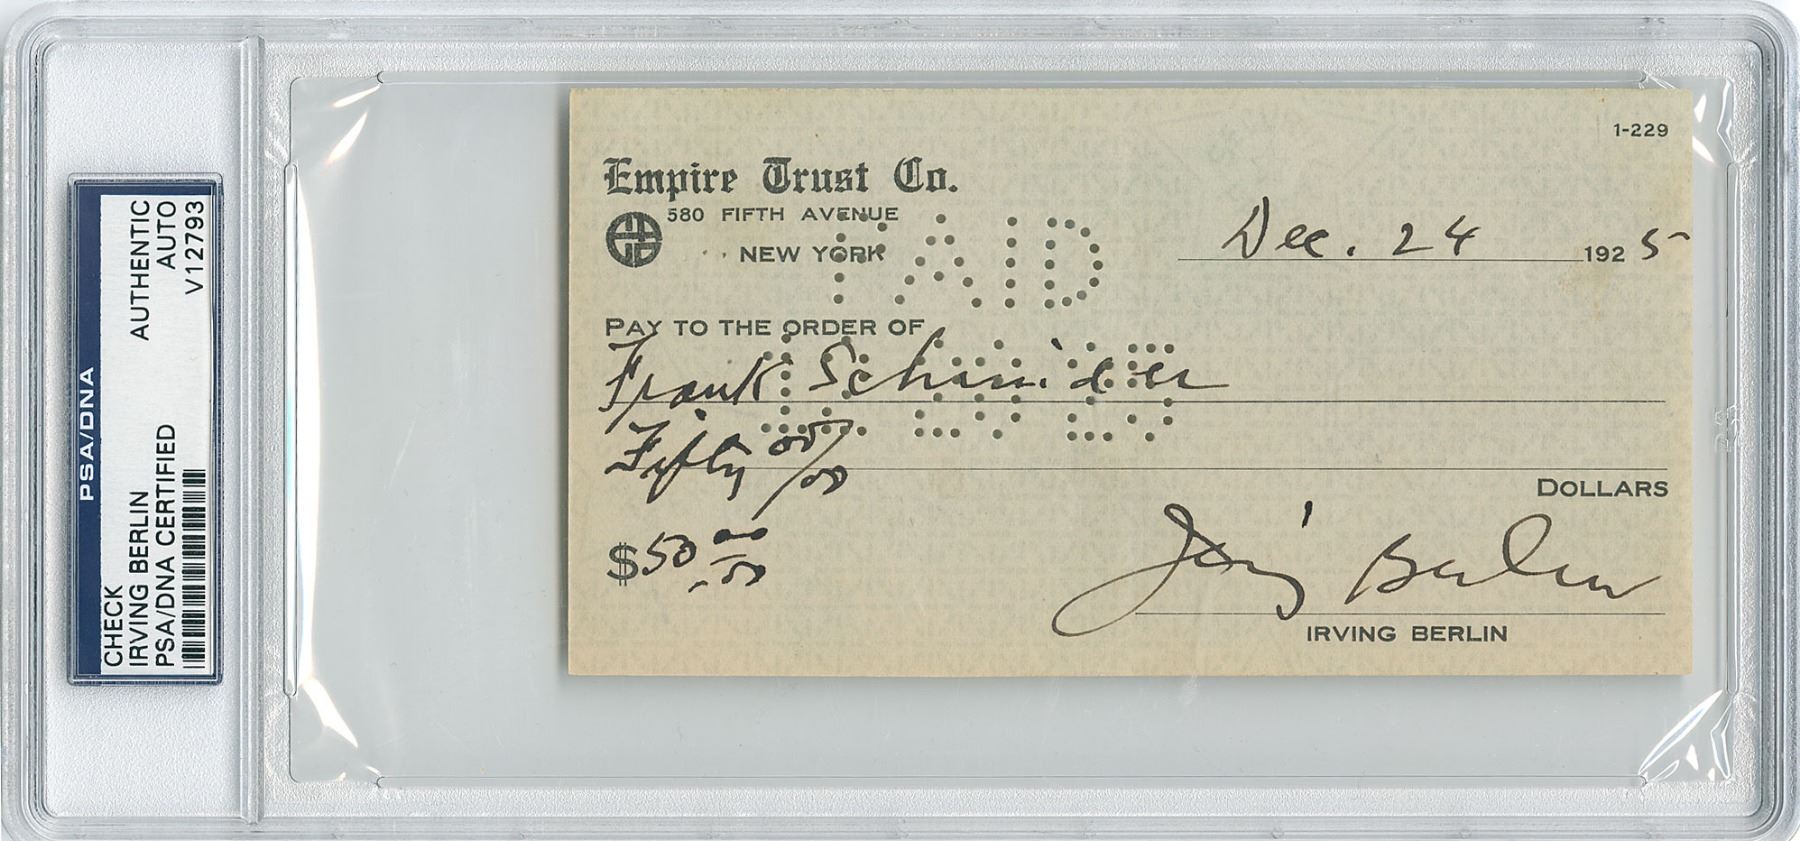 PSA/DNA
CHECK AUTHENTIC
IRVING BERLIN AUTO
PSA/DNA CERTIFIED V12793
1-229
Empire Trust Co.
580 FIFTH AVENUE
NEW YORK
Dec. 24 1925
PAID
PAY TO THE ORDER OF
Frank Schnider
Fifty 00/00
DOLLARS
$50 00/00
Irving Berlin
IRVING BERLIN